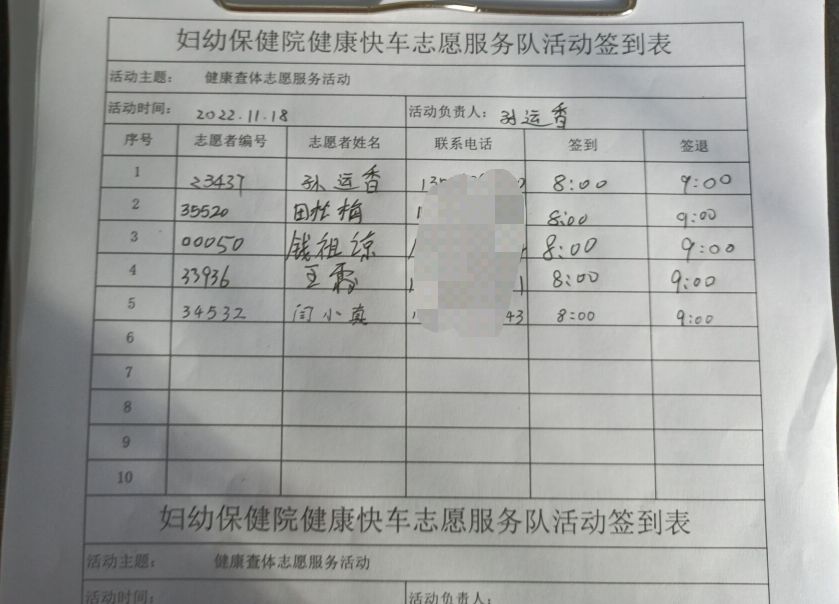 妇幼保健院健康快车志愿服务队活动签到表
活动主题： 健康查体志愿服务活动
活动时间： 2022.11.18 活动负责人： 孙运香
序号 志愿者编号 志愿者姓名 联系电话 签到 签退
1 23437 孙运香 8:00 9:00
2 35520 8:00 9:00
3 00050 钱祖琼 8:00 9:00
4 33936 王霞 8:00 9:00
5 34532 闫小真 43 8:00 9:00
6
7
8
9
10
妇幼保健院健康快车志愿服务队活动签到表
活动主题： 健康查体志愿服务活动
活动时间： 活动负责人：